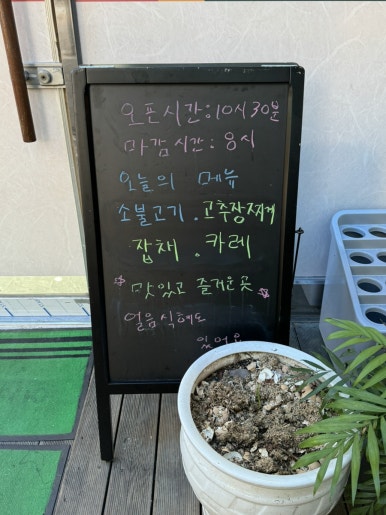 오픈시간:10시30분
마감시간:8시
오늘의 메뉴
소불고기.고추장찌게
잡채.카레
맛있고 즐거운곳
얼음식혜도
있어요